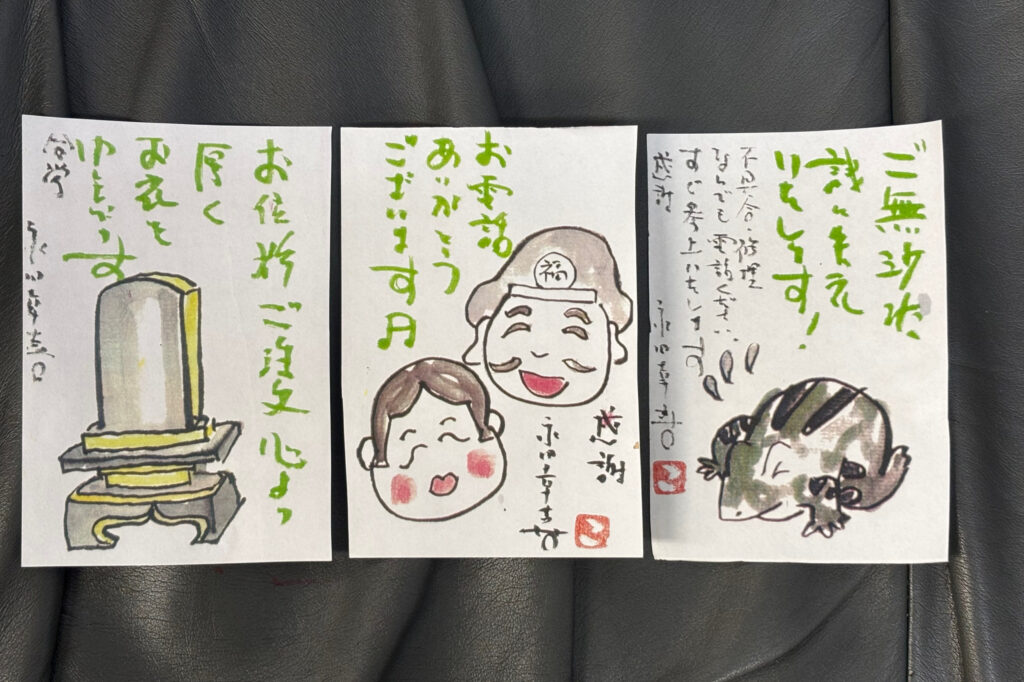 お位牌 ご注文 心より
厚く
お礼を
申し上げます
合掌
永田幸
お電話
ありがとう
ございます
福
感謝
永田幸
ご無沙汰
誠に
いたします!
不具合・修理
なんでも電話ください
すぐ参上いたします
感謝
永田幸